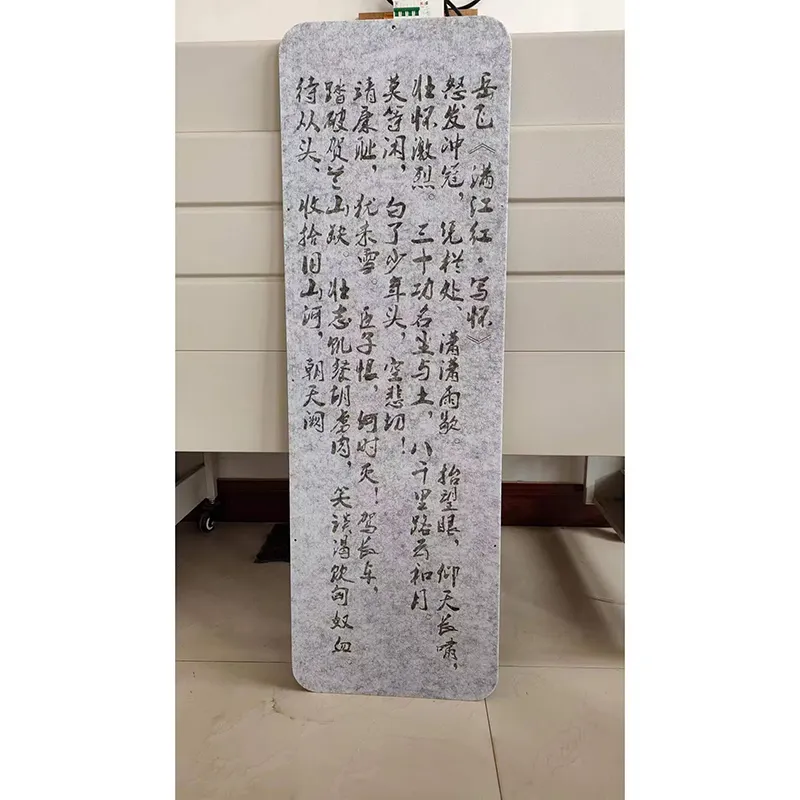 岳飞《潇江红·写怀》
怒发冲冠，凭栏处、潇潇雨歇。抬望眼，仰天长啸，
壮怀激烈。三十功名尘与土，八千里路云和月。
莫等闲，白了少年头，空悲切！
靖康耻，犹未雪。臣子恨，何时灭！驾长车，
踏破贺兰山缺。壮志饥餐胡虏肉，笑谈渴饮匈奴血
待从头、收拾旧山河，朝天阙